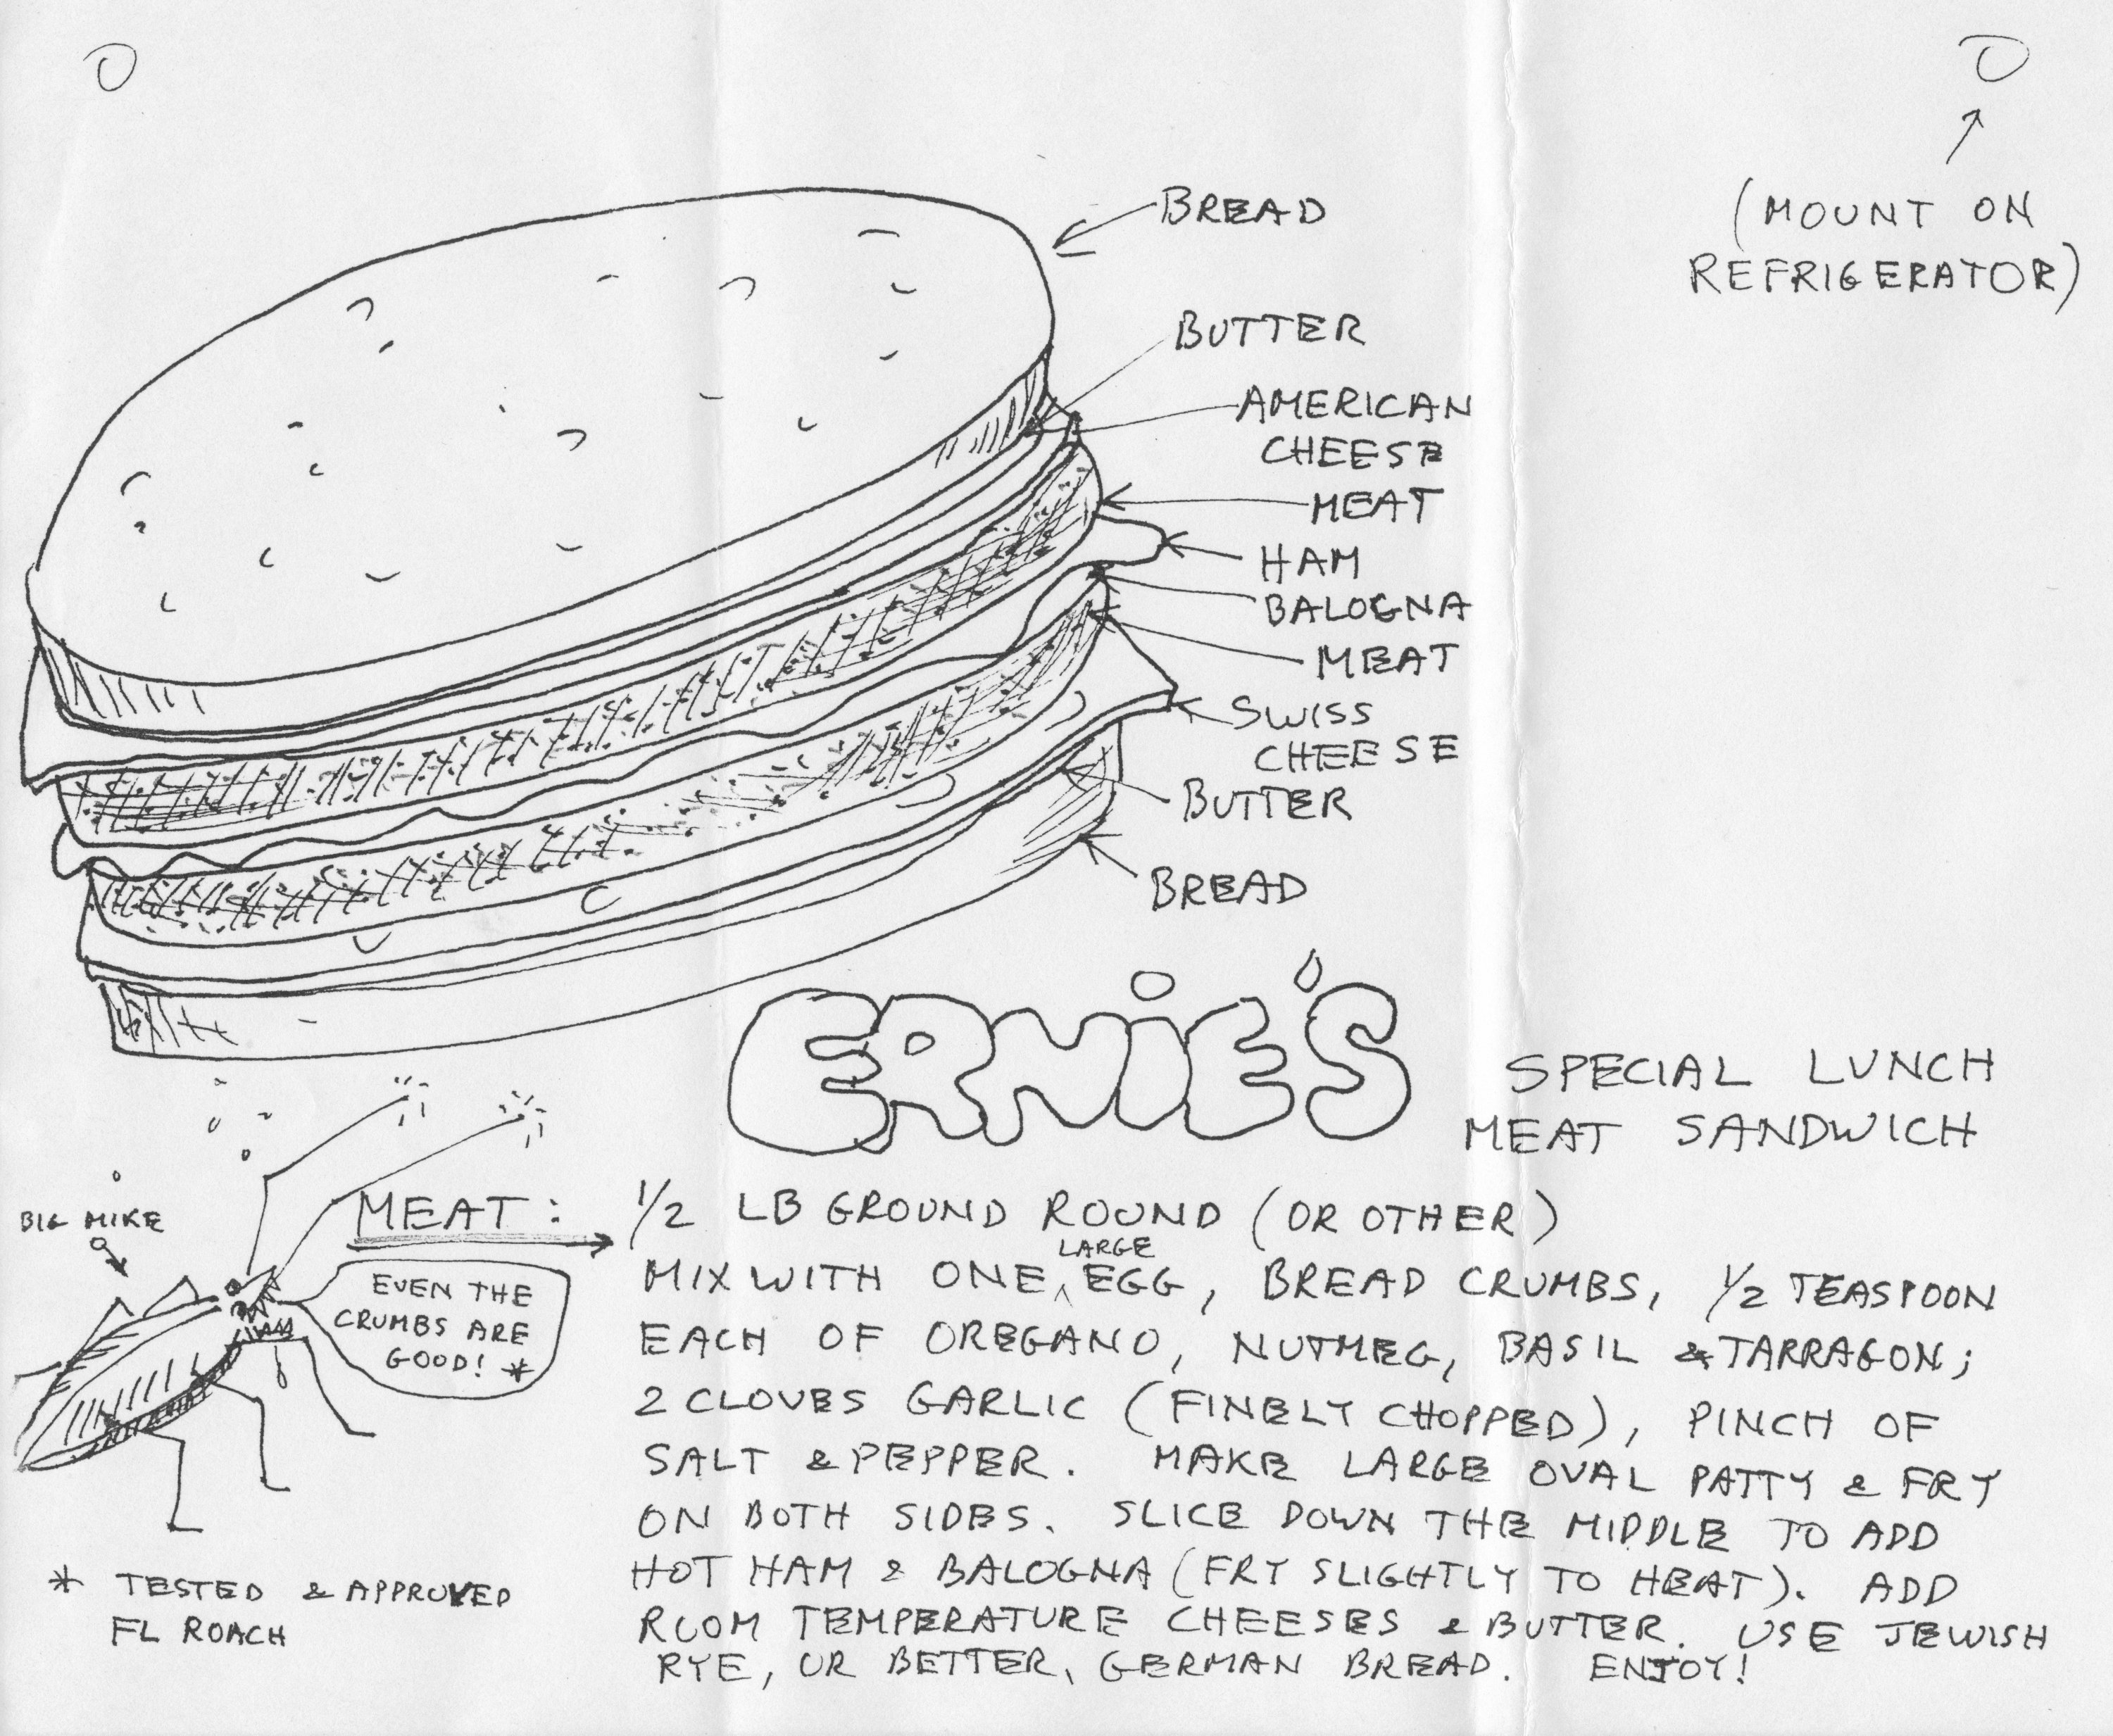 (MOUNT ON
REFRIGERATOR)
BREAD
BUTTER
AMERICAN
CHEESE
MEAT
HAM
BALOGNA
MEAT
SWISS
CHEESE
BUTTER
BREAD
ERNiE'S
SPECIAL LUNCH
MEAT SANDWICH
BIG MIKE
EVEN THE
CRUMBS ARE
GOOD! *
* TESTED & APPROVED
FL ROACH
MEAT: 1/2 LB GROUND ROUND (OR OTHER)
MIX WITH ONE LARGE EGG, BREAD CRUMBS, 1/2 TEASPOON
EACH OF OREGANO, NUTMEG, BASIL & TARRAGON;
2 CLOVES GARLIC (FINELY CHOPPED), PINCH OF
SALT & PEPPER. MAKE LARGE OVAL PATTY & FRY
ON BOTH SIDES. SLICE DOWN THE MIDDLE TO ADD
HOT HAM & BALOGNA (FRY SLIGHTLY TO HEAT). ADD
ROOM TEMPERATURE CHEESES & BUTTER. USE JEWISH
RYE, OR BETTER, GERMAN BREAD. ENJOY!